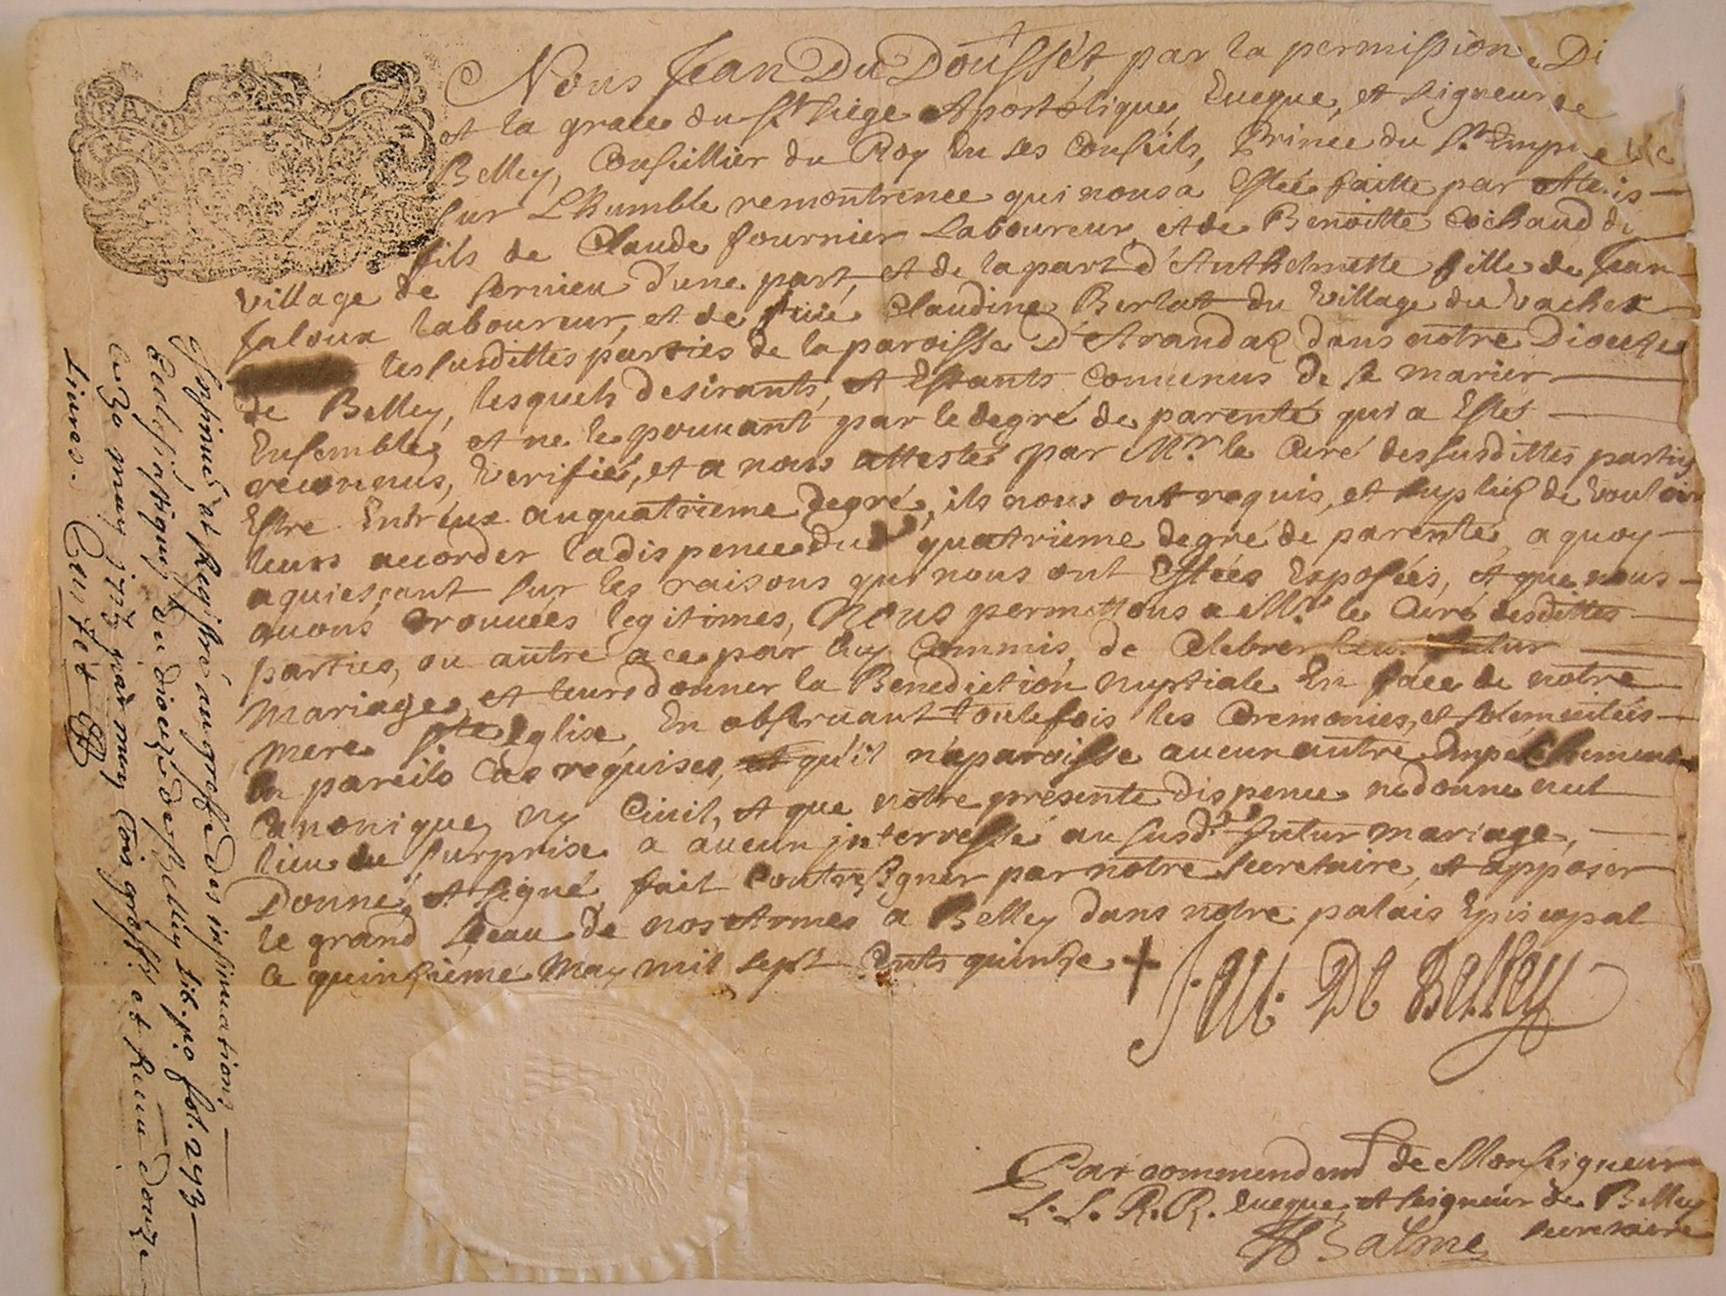 Nous Jean Du Doussét, par la permission Di
et la grace du St Siege Apostolique, Eueque, et seigneur de
Belley, Conseillier du Roy En ses Conseils, Prince du St Empire
sur L'humble remontrence qui nous a Estée faitte par Alexis
fils de Claude fournier Laboureur, et de Benoitte Cochaud du
village de sernieu d'une part, et de la part d'Anthelmette fille de Jean
Jaloux laboureur, et de feüe Claudine Berlat du village du vachet
les susdittes parties de la paroisse D'Arandaz dans notre Diocese
de Belley, lesquels desirants, et Estants Conuenus de se marier
Ensemble, et ne le pouuant par le degré de parenté qui a Estés
reconnus, Verifié, et a nous attestés par Mr. le Curé des susdittes parties
Estre Entr'eux au quatrieme degré, ils nous ont requis, et supliez de vouloir
leurs accorder la dispence du quatrieme degré de parenté, a quoy
aquiesçant sur les raisons qui nous ont Estées Exposées, et que nous
auons trouuées legitimes, Nous permettons a Mr. le Curé desdittes
parties, ou autre a ce par luy Commis, de Celebrer leur futur
Mariage, et leurs donner la Benediction nuptiale En face de notre
mere ste Eglise, En obseruant toutefois les Ceremonies, et solemnitées
En pareils Cas requises, et qu'il n'aparoisse aucun autre Empéchement
Canonique, ny Ciuil, et que notre présente dispence ne donne nul
lieu de surprise a aucun interressé au susdt. futur mariage,
Donné, et signé, fait Contresigner par notre secretaire, et apposer
le grand sçeau de nos Armes a Belley dans notre palais Episcopal
le quinsième May mil sept cents quinse
† J. Eu. De Belley
Par commendemt de Monseigneur
L. L. R. R. Eueque, et seigneur de Belley
Balme secretaire
Insinué et Registré au greffe des insinuations
Ecclesiastiques du dioceze de Belley Lib. fol. 293
ce 30 may 1715 par moy Cõis greffr et Receu douze
Liures.